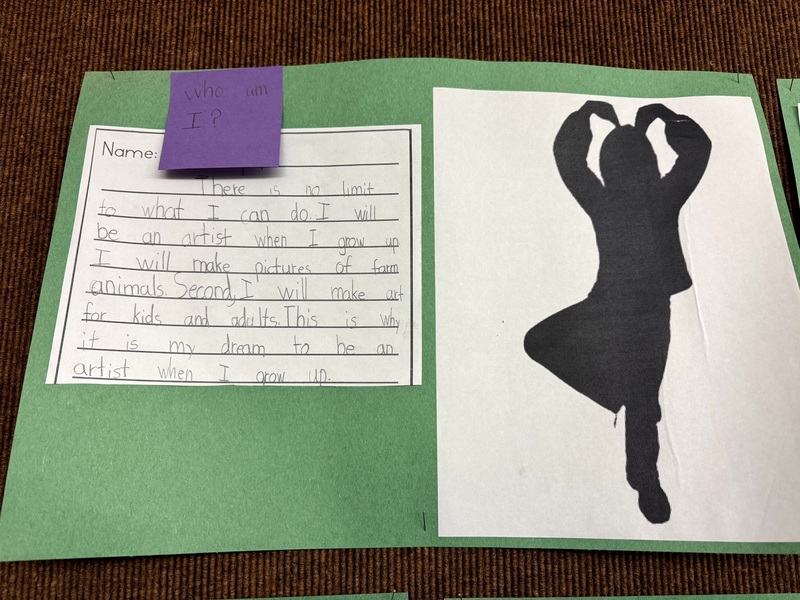 who am
I?
Name:
There is no limit
to what I can do. I will
be an artist when I grow up
I will make pictures of farm
animals. Second, I will make art
for kids and adults. This is why
it is my dream to be an
artist when I grow up.